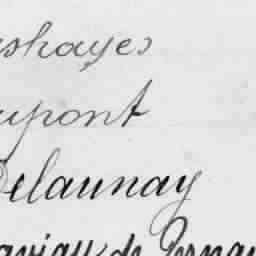 shayes
upont
Delaunay
aviau de Pernau